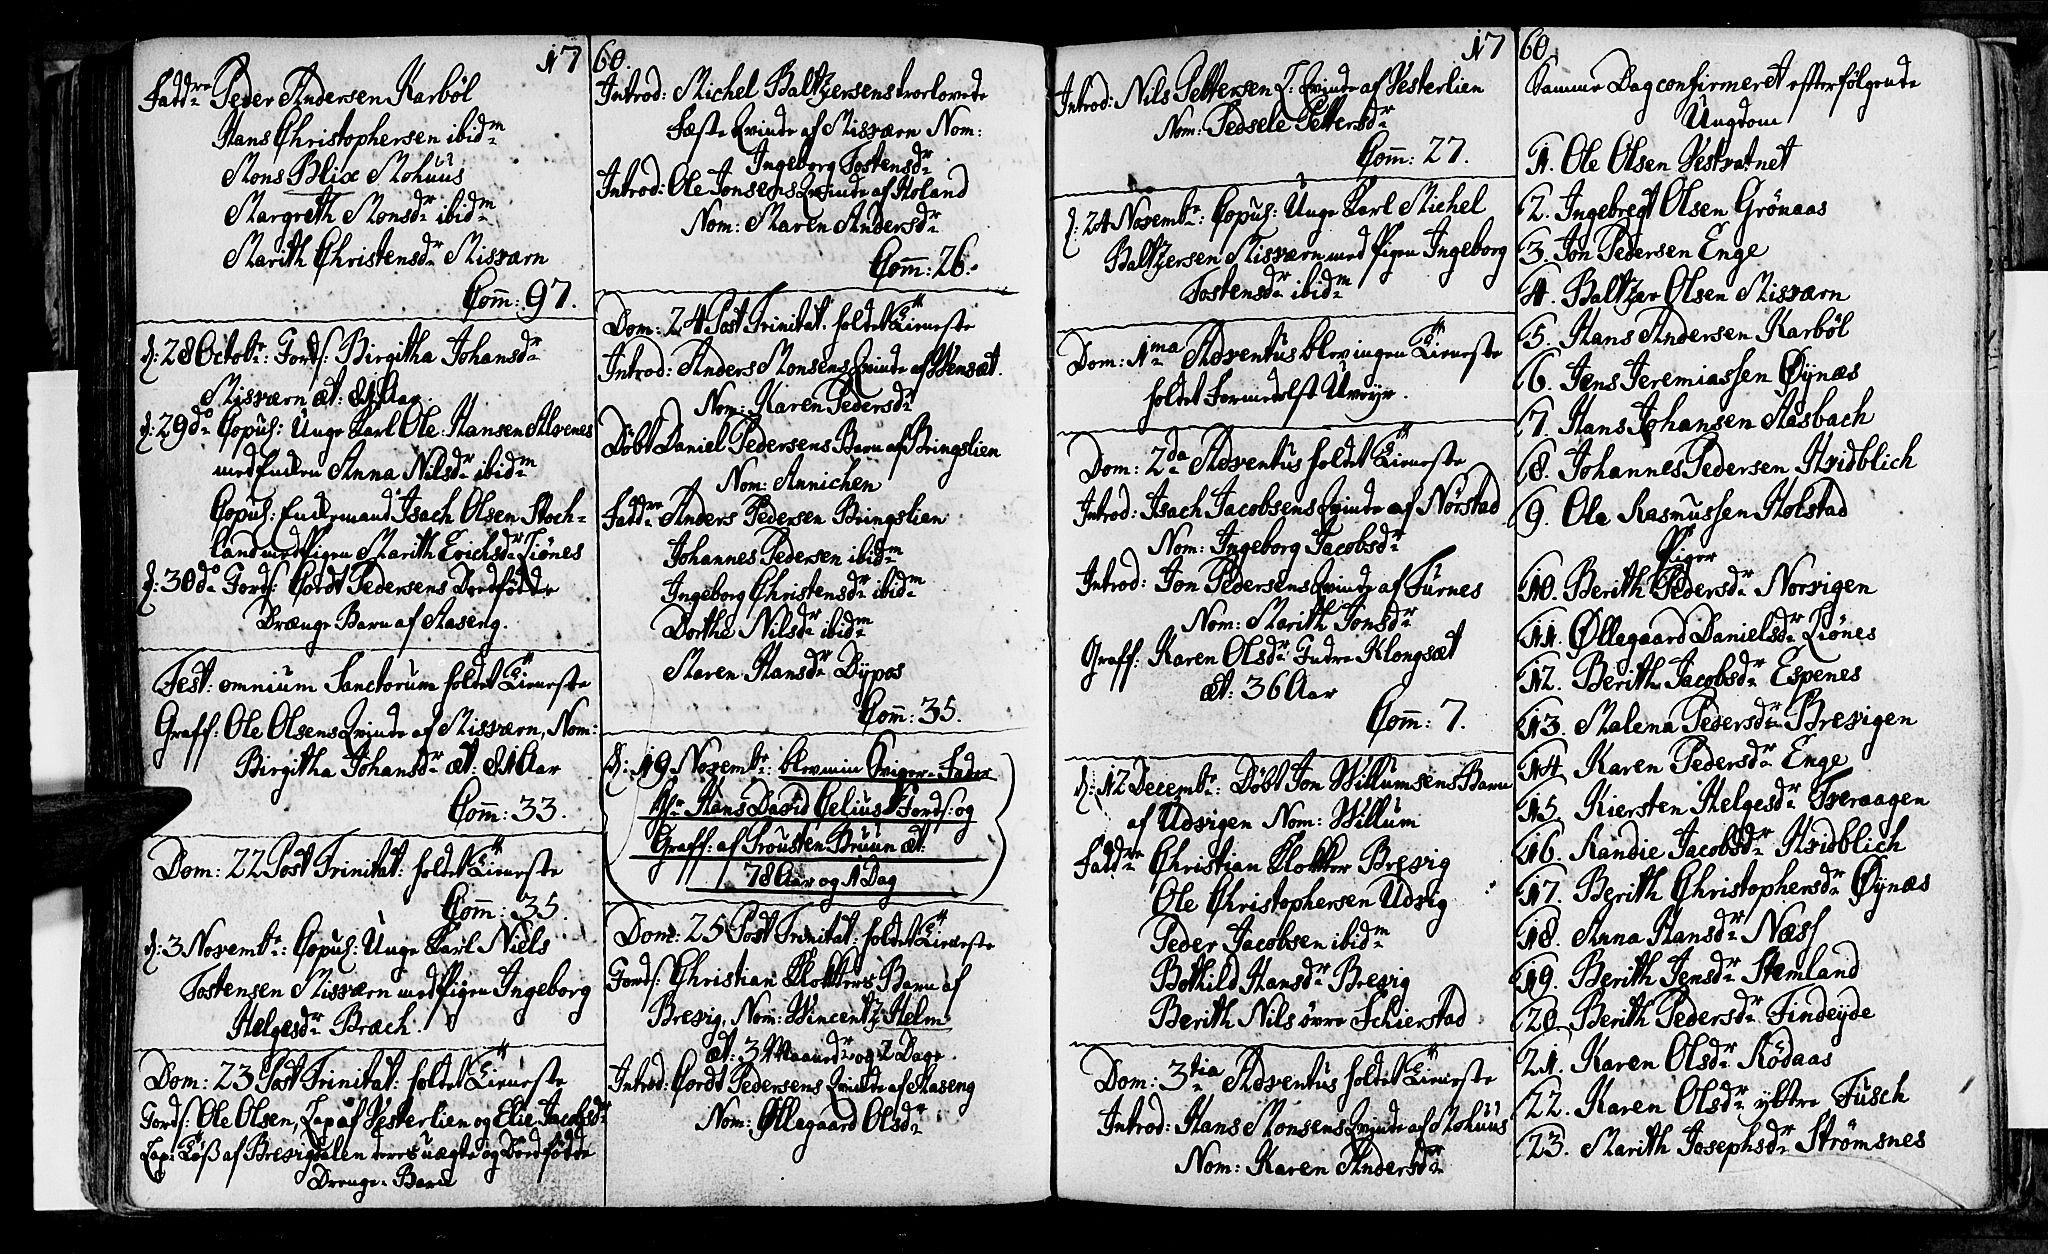 1760.
Fadd: Peder Andersen Karbøl
Hans Christophersen ibidm
Mons Blix Mohuus
Margreth Monsdr ibidm
Marith Christensdr Misværn
Com: 97.
d: 28 Octobr: Jords: Birgitha Johansdr
Misværn æt: 81 Aar.
d: 29do Copul: Unge Karl Ole Hansen Alvenes
med Enken Anna Nilsdr ibidm
Copul: Enkemand Isach Olsen Stoch-
land med Pigen Marith Erichsdr Liønes
d: 30do Jords: Cordt Pedersens Dødfødde
Drænge Barn af Aaseng.
Fest: omnium Sanctorum holdet Tieneste
Graff: Ole Olsens Qvinde af Misværn, Nom:
Birgitha Johansdr æt: 81 Aar
Com: 33.
Dom: 22 Post Trinitat: holdet Tieneste
Com: 35.
d: 3 Novembr: Copul: Unge Karl Niels
Tostensen Misværn med Pigen Ingeborg
Helgesdr Bræch.
Dom: 23 Post Trinitat: holdet Tieneste
Jords: Ole Olsen, Lap af Vesterlien og Elie Jacobsdr
Lap: Løß af Brevigdalen deres uægte og Dødfødde
Drenge-Barn
Introd: Michel Baltzersens trorlovede
Fæste Qvinde af Misværn Nom:
Ingeborg Tostensdr
Introd: Ole Jonsens Qvinde af Holand
Nom: Maren Andersdr
Com: 26.
Dom: 24 Post Trinitat: holdet Tieneste
Introd: Anders Monsens Qvinde af Wensæt.
Nom: Karen Pedersdr
Døbt Daniel Pedersens Barn af Bringslien
Nom: Annichen
Fadd: Anders Pedersen Bringslian
Johannes Pedersen ibidm
Ingeborg Christensdr ibidm
Dorthe Nilsdr ibidm
Maren Hansdr Dypos
Com: 35.
d: 19 Novembr: blev min Sviger-Fader
Hr Hans David Celius Jords: og
Graff: af Trousten Bruun æt:
78 Aar og 1 Dag
Dom: 25 Post Trinitat: holdet Tieneste
Jords: Christian Klokkers Barn af
Brevig, Nom: Wincentz Helm
æt: 3 Maander og 2 Dage
Introd: Cordt Pedersens Qvinde af Aaseng
Nom: Øllegaard Olsdr
1760
Introd: Nils Pettersen L: Qvinde af Vesterlien
Nom: Sedsele Pettersdr
Com: 27.
d: 24 Novembr: Copul: Unge Karl Michel
Baltzersen Misværn med Pigen Ingeborg
Tostensdr ibidm
Dom: 1ma Adventus blev ingen Tieneste
holdet formedelst Uveyr.
Dom: 2da Adventus holdet Tieneste
Introd: Isach Jacobsens Qvinde af Nørstad
Nom: Ingeborg Jacobsdr
Introd: Jon Pedersens Qvinde af Furnes
Nom: Marith Jonsdr
Graff: Karen Olsdr Indre Klongsæt
æt: 36 Aar
Com: 7.
d: 12 Decembr: Døbt Jon Willumsens Barn
af Udvigen Nom: Willum
Fadd: Christian Klokker Brevig
Ole Christophersen Udvig
Peder Jacobsen ibidm
Bothild Hansdr Brevig
Berith Nils øvre Schierstad
Dom: 3tia Adventus holdet Tieneste
Introd: Hans Monsens Qvinde af Mohuus
Nom: Karen Andersdr
Samme Dag confirmeret efterfølgende
Ungdom
1. Ole Olsen Vestvatnet
2. Ingebregt Olsen Grønaas
3. Jon Pedersen Enge
4. Baltzer Olsen Misværn
5. Hans Andersen Karbøl
6. Jens Jeremiassen Øynæs
7. Hans Johansen Aasbach
8. Johannes Pedersen Hvidblich
9. Ole Rasmussen Holstad
Piger
10. Berith Pedersdr Norvigen
11. Øllegaard Danielsdr Liønes
12. Berith Jacobsdr Espenes
13. Malena Pedersdr Brevigen
14. Karen Pedersdr Enge
15. Kiersten Helgesdr Tveraagen
16. Randie Jacobsdr Hvidblich
17. Berith Christophersdr Øynæs
18. Anna Hansdr Næss
19. Berith Jensdr Stemland
20. Berith Pedersdr Findeyde
21. Karen Olsdr Rødaas
22. Karen Olsdr yttre Fusch
23. Marith Josephsdr Strømsnes